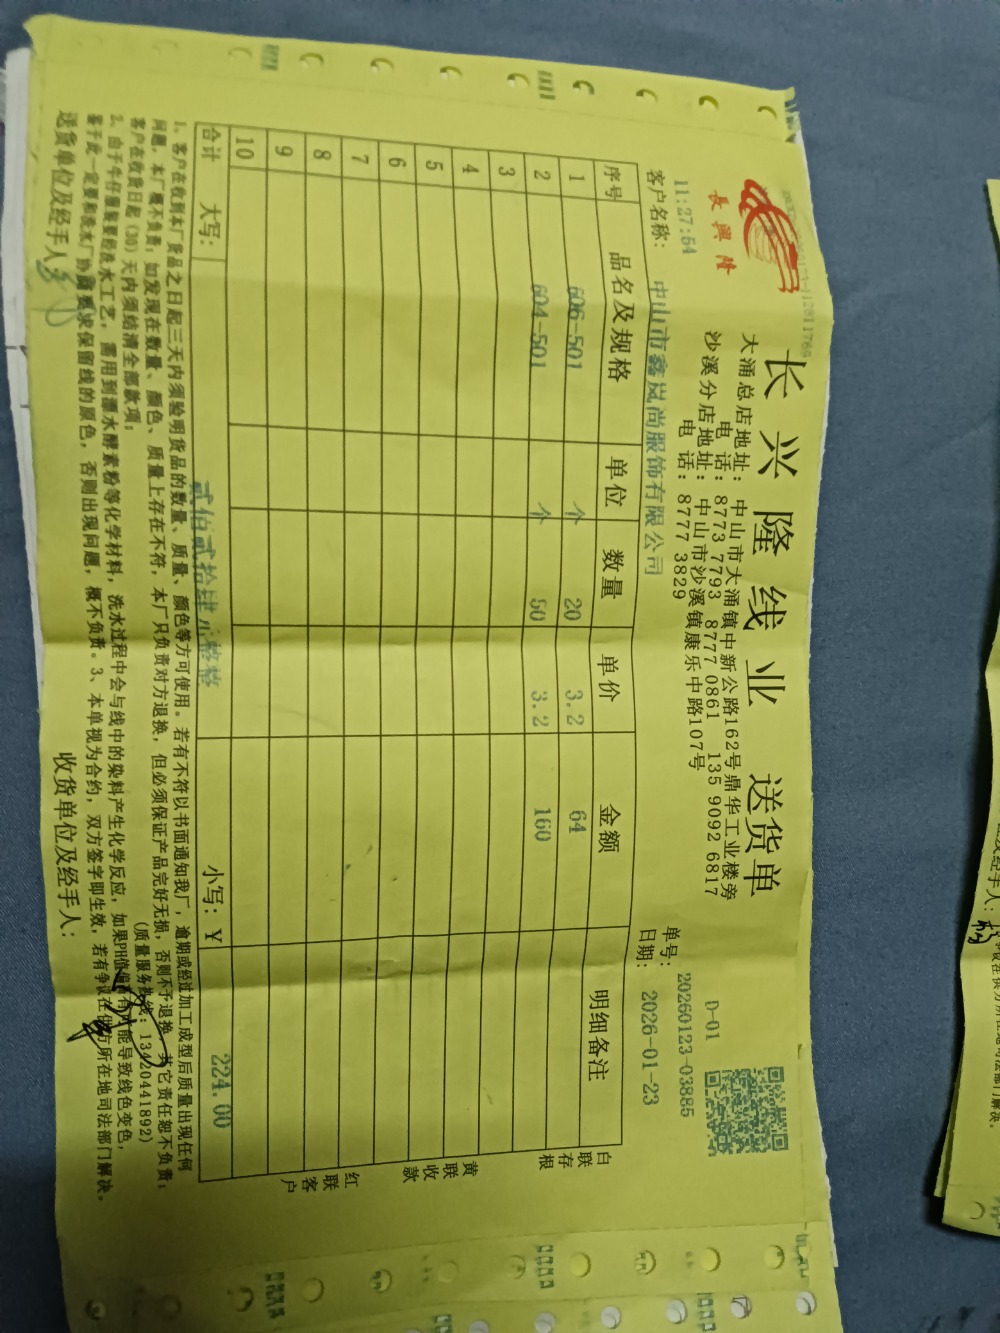 長興隆
长兴隆线业 送货单
D-01
大涌总店地址：中山市大涌镇中新公路162号鼎华工业楼旁
电话：8773 7793 8777 0861 135 9092 6817
沙溪分店地址：中山市沙溪镇康乐中路107号
电话：8777 3829
单号：20260123-03885
11:27:54
客户名称：中山市鑫岚尚服饰有限公司 日期：2026-01-23
序号 品名及规格 单位 数量 单价 金额 明细备注
1 606-501 个 20 3.2 64
2 604-501 个 50 3.2 160
3
4
5
6
7
8
9
10
合计 大写： 贰佰贰拾肆元整整 小写：¥ 224.00
白联存根
黄联收款
红联客户
1、客户在收到本厂货品之日起三天内须验明货品的数量、质量、颜色等方可使用。若有不符以书面通知我厂，逾期或经过加工成型后质量出现任何
问题，本厂概不负责；如发现在数量、颜色、质量上存在不符，本厂只负责对方退换，但必须保证产品完好无损，否则不予退换，其它责任恕不负责；
客户在收货日起（30）天内须结清全部款项； （质量服务热线：13420441892）
2、由于牛仔服装要经洗水工艺，需用到漂水酵素粉等化学材料，洗水过程中会与线中的染料产生化学反应，如果PH值偏高有可能导致线色变色，
鉴于此一定要和洗水厂协商要求保留线的原色，否则出现问题，概不负责。3、本单视为合约，双方签字即生效，若有争议在供方所在地司法部门解决。
送货单位及经手人： 收货单位及经手人：